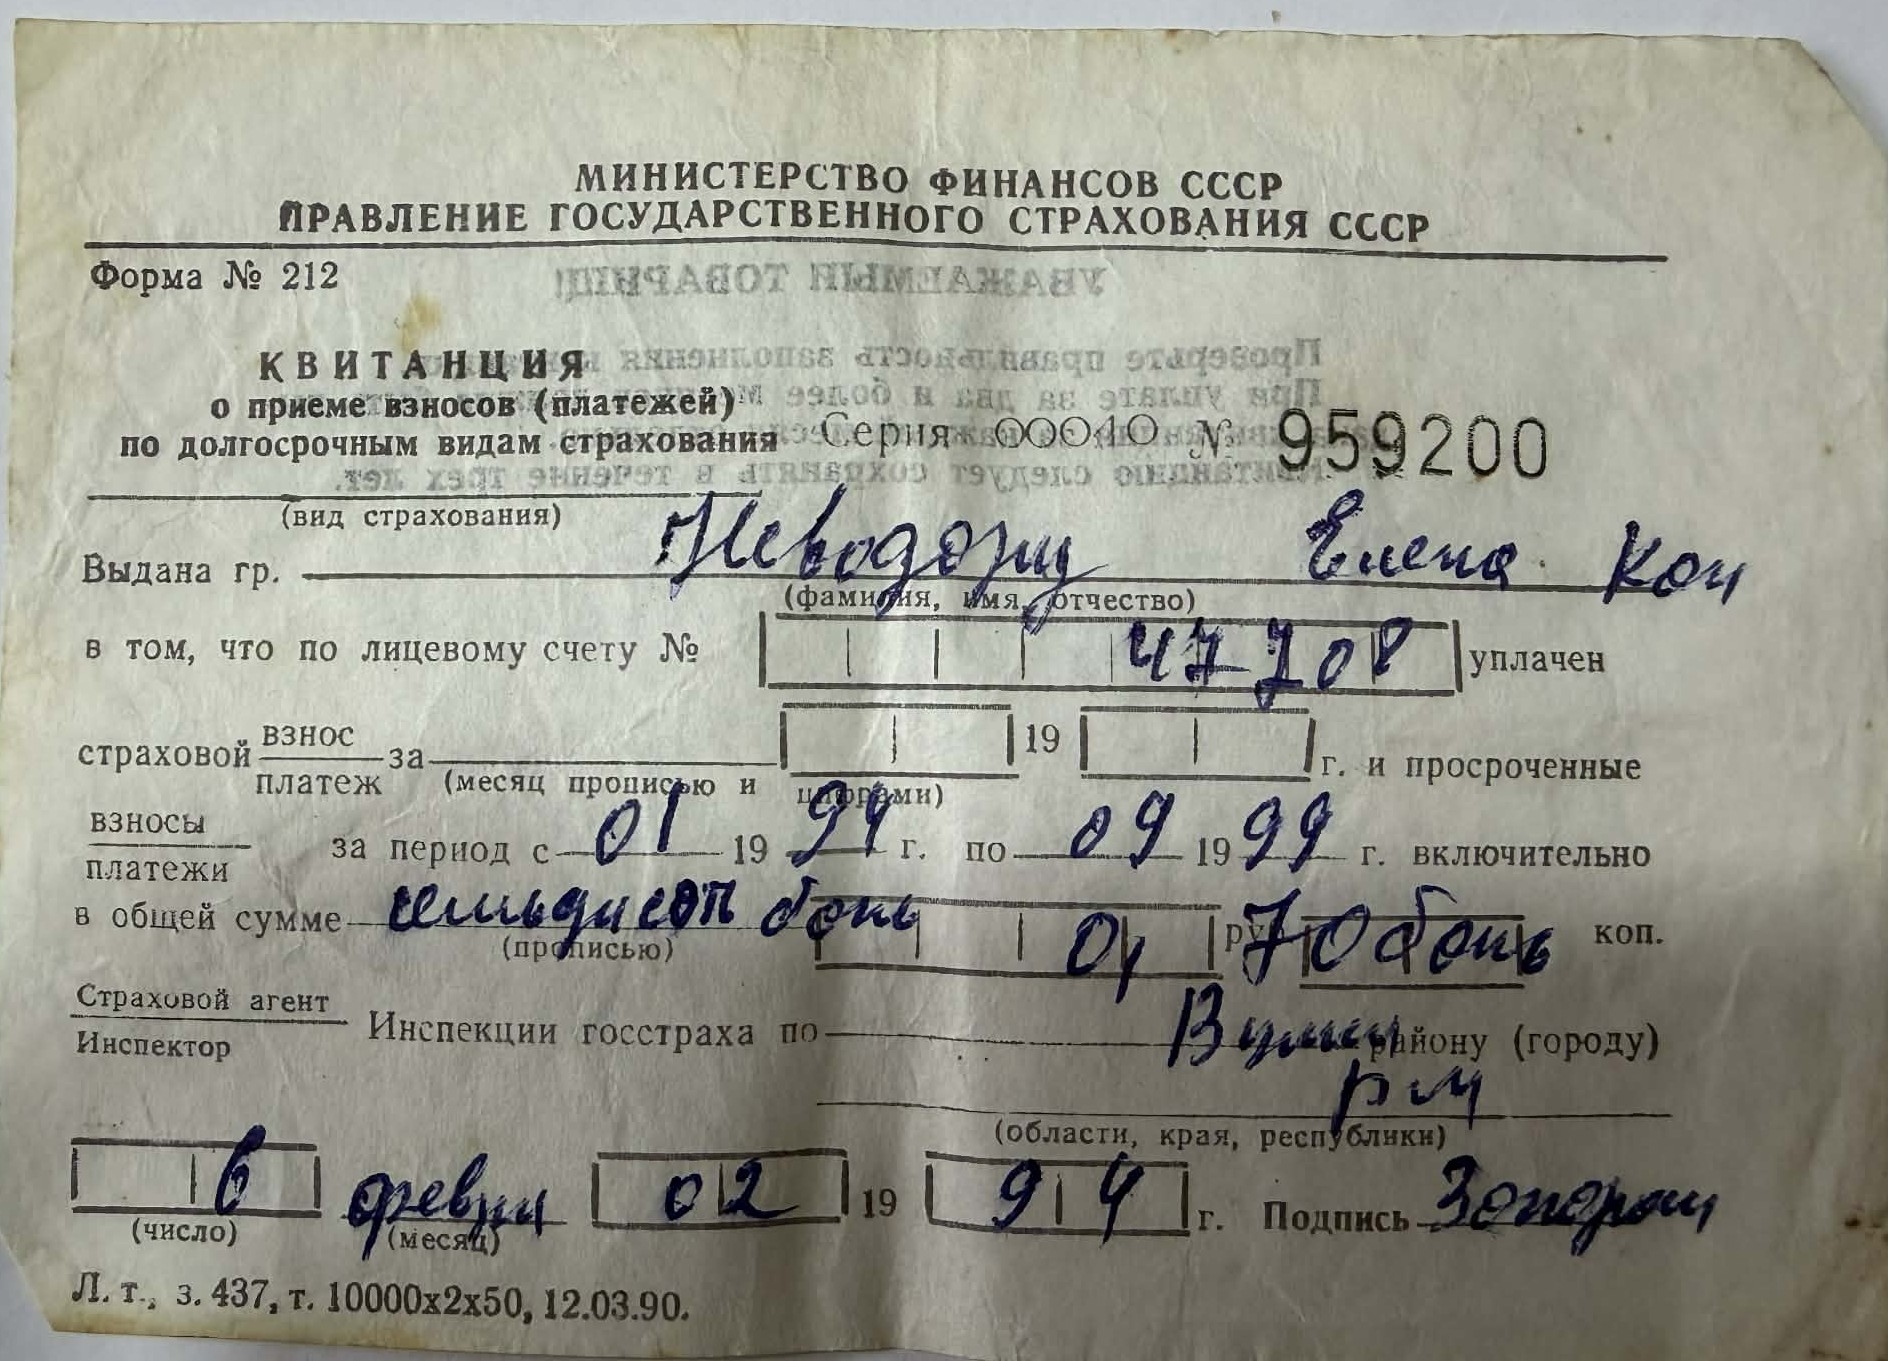 МИНИСТЕРСТВО ФИНАНСОВ СССР
ПРАВЛЕНИЕ ГОСУДАРСТВЕННОГО СТРАХОВАНИЯ СССР
Форма № 212
УВАЖАЕМЫЙ ТОВАРИЩ!
КВИТАНЦИЯ
Проверьте правильность заполнения
о приеме взносов (платежей)
При уплате за два и более
по долгосрочным видам страхования Серия 00040 № 959200
следует сохранять в течение трех лет.
(вид страхования)
Выдана гр. Елена Кон
(фамилия, имя, отчество)
в том, что по лицевому счету № 47708 уплачен
страховой взнос/платеж за 19 г. и просроченные
(месяц прописью и цифрами)
взносы/платежи за период с 01 1994 г. по 09 1999 г. включительно
в общей сумме семьдесят бань 0, руб 70 бань коп.
(прописью)
Страховой агент/Инспектор Инспекции госстраха по району (городу)
РМ
(области, края, республики)
6 феврал 02 1994 г. Подпись
(число) (месяц)
Л. т., з. 437, т. 10000х2х50, 12.03.90.